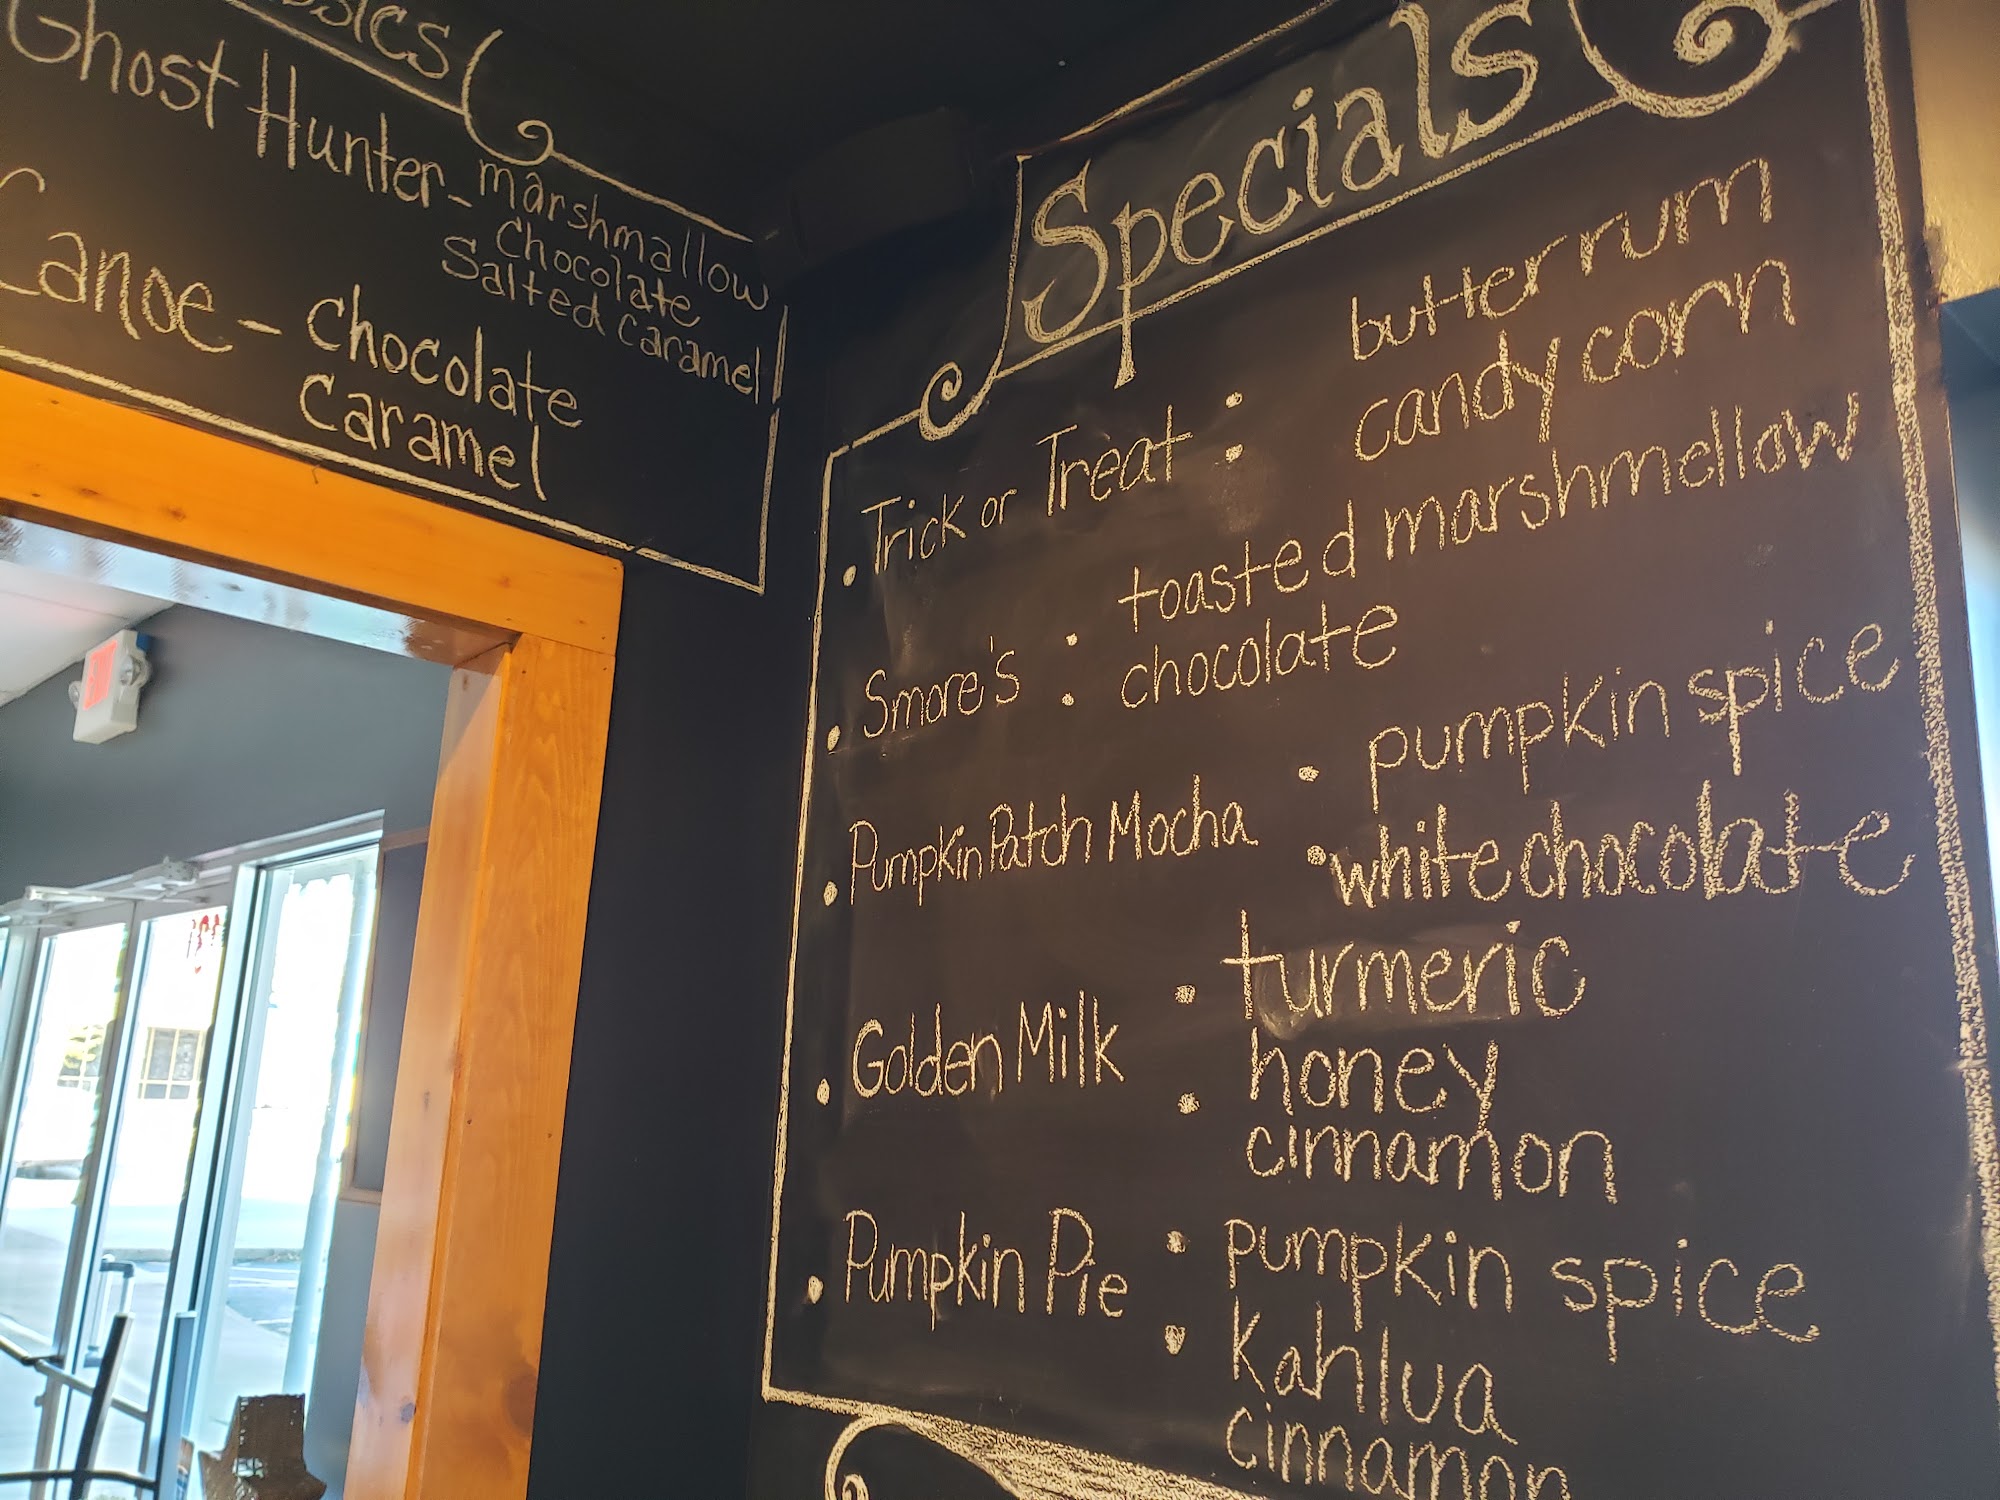 Ghost Hunter - marshmallow
chocolate
Salted caramel
Canoe - chocolate
caramel
Specials
• Trick or Treat : butter rum
candy corn
• Smore's : toasted marshmellow
chocolate
• Pumpkin Patch Mocha • pumpkin spice
• white chocolate
• Golden Milk • turmeric
• honey
cinnamon
• Pumpkin Pie • pumpkin spice
• Kahlua
cinnamon